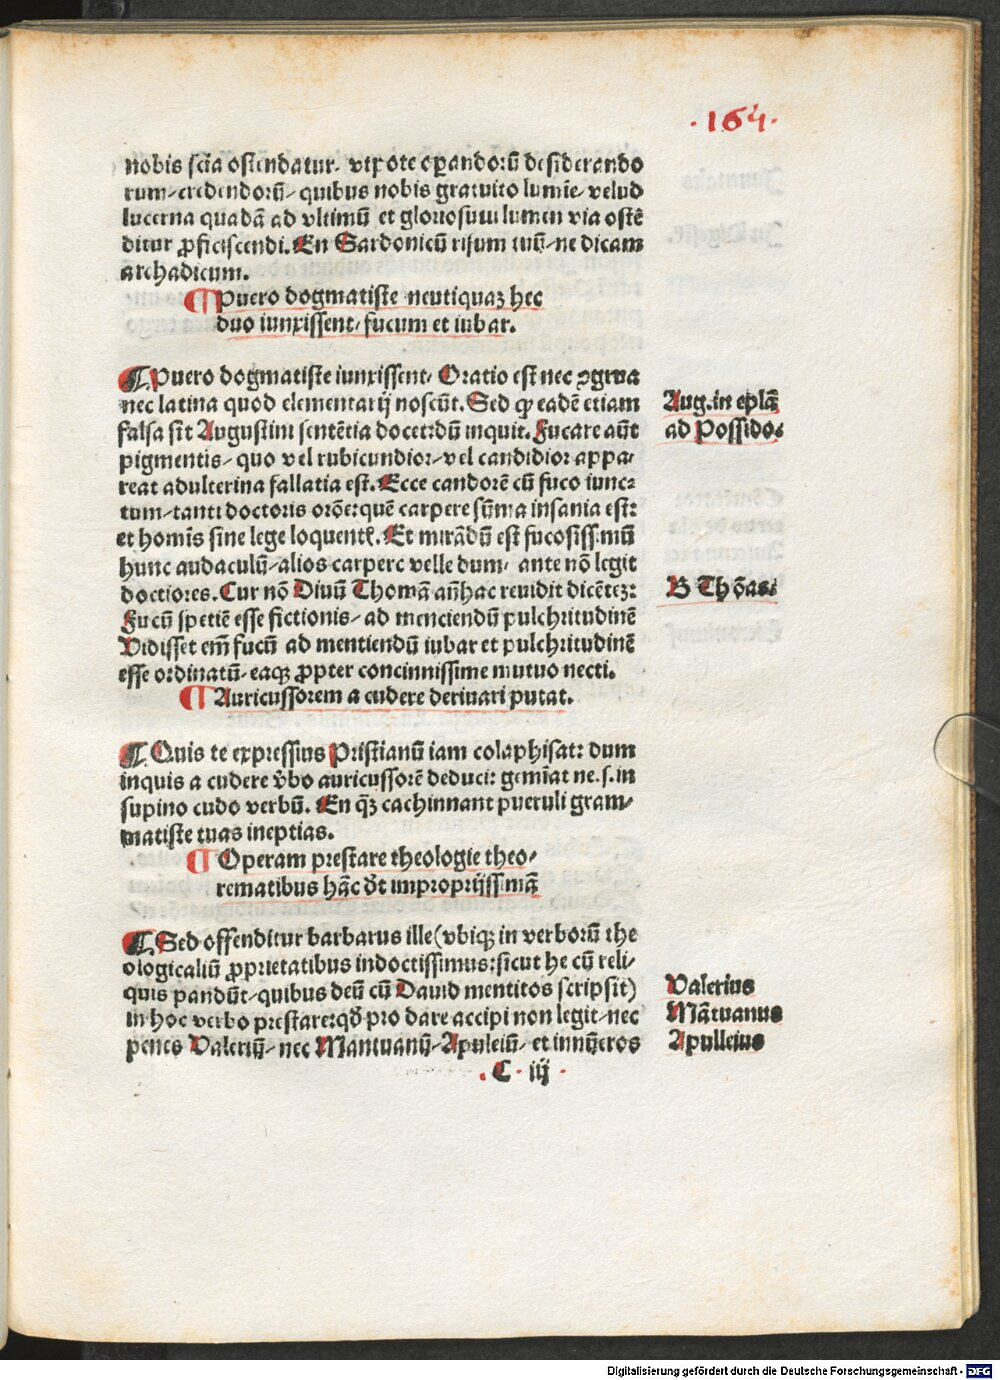 .164.
nobis scīa ostendatur. vtpote oꝑandorū desiderando
rum/credendorū/quibus nobis gratuito lumīe/velud
lucerna quadā ad vltimū et gloriosum lumen via ostē
ditur ꝓficiscendi. En Sardonicū risum tuū/ne dicam
archadicum.
¶ Puero dogmatiste neutiquaꝫ hec
duo iunxissent/fucum et iubar.
¶ Puero dogmatiste iunxissent/ Oratio est nec ꝯgrua
nec latina quod elementarij noscūt. Sed ꝙ eadē etiam
falsa sīt Augustini sentētia docet:dū inquit. Fucare aūt
pigmentis/quo vel rubicundior/vel candidior appa/
reat adulterina fallatia est. Ecce candorē cū fuco iunc:
tum/tanti doctoris orōe:quē carpere sūma insania est:
et homīs sine lege loquentꝭ. Et mirādū est fucosissimū
hunc audaculū/alios carpere velle dum/ ante nō legit
doctiores. Cur nō Diuū Thomā añhac reuidit dicētez:
Fucū spetiē esse fictionis/ad menciendū pulchritudinē
Vidisset em̄ fucū ad mentiendū iubar et pulchritudinē
esse ordinatū/eaqꝫ ꝓpter concinnissime mutuo necti.
¶ Auricussorem a cudere deriuari putat.
¶ Quis te expressius Pristianū iam colaphisat: dum
inquis a cudere v̄bo auricussorē deduci: gemīat ne.s.in
supino cudo verbū. En q̄ꝫ cachinnant pueruli gram/
matiste tuas ineptias.
¶ Operam prestare theologie theo/
rematibus hāc dt̄ impropriissimā
¶ Sed offenditur barbarus ille (vbiqꝫ in verborū the
ologicaliū ꝓprietatibus indoctissimus:sicut he cū reli/
quis pandūt/quibus deū cū Dauid mentitos scripsit)
in hoc verbo prestare:qd̄ pro dare accipi non legit/nec
penes Valeriū/nec Mantuanū/Apuleiū/ et innūeros
.C. iij.
Aug. in eplā
ad Possido:
B Thōas:
Valerius
Mātuanus
Apulleius
Digitalisierung gefördert durch die Deutsche Forschungsgemeinschaft - DFG